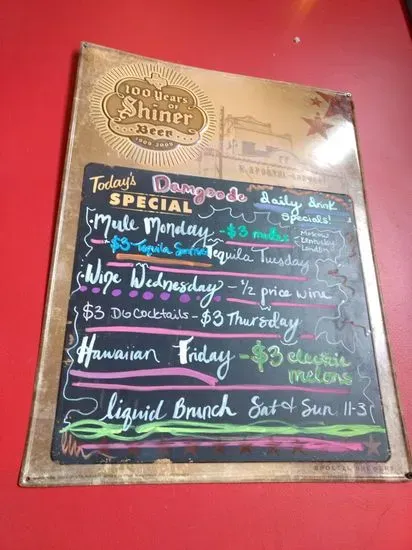 100 Years
of
Shiner
Beer
1909 2009
Today's
SPECIAL
Damgoode
daily drink
specials!
Mule Monday - $3 mules
Moscow
Kentucky
London
$3 Tequila Sunrise Tequila Tuesday
Wine Wednesday - 1/2 price wine
$3 DG Cocktails - $3 Thursday
Hawaiian Friday - $3 electric
melons
liquid Brunch Sat & Sun 11-3
SPOETZL BREWERY